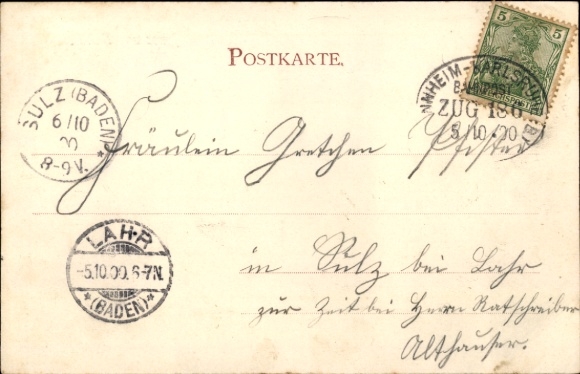 POSTKARTE.
5 5
REICHSPOST
MANNHEIM-KARLSRUHE
BAHNPOST
ZUG 186
5/10 00
SULZ (BADEN)
6/10
00
8-9V.
Fräulein Gretchen Pfister
LAHR
-5.10.00.6-7N.
*(BADEN)*
in Sulz bei Lahr
zur Zeit bei Herrn Ratschreiber
Althauser.